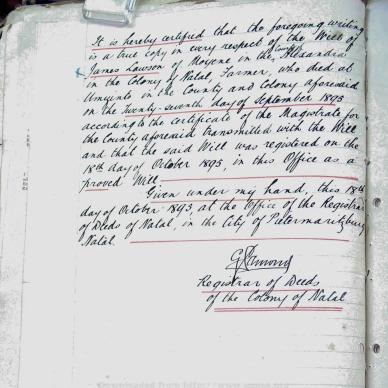 It is hereby certified that the foregoing writing
is a true copy in every respect of the Will of
James Lawson of Moyone in the County Alexandra
in the Colony of Natal, Farmer, who died at
in the County and Colony aforesaid
on the Twenty-seventh day of September 1893
according to the certificate of the Magistrate for
the County aforesaid transmitted with the Will
and that the said Will was registered on the
18th day of October 1893, in this Office as a
proved Will
Given under my hand, this 18th
day of October 1893, at the Office of the Registrar
of Deeds of Natal, in the City of Pietermaritzburg
Natal.
Registrar of Deeds
of the Colony of Natal